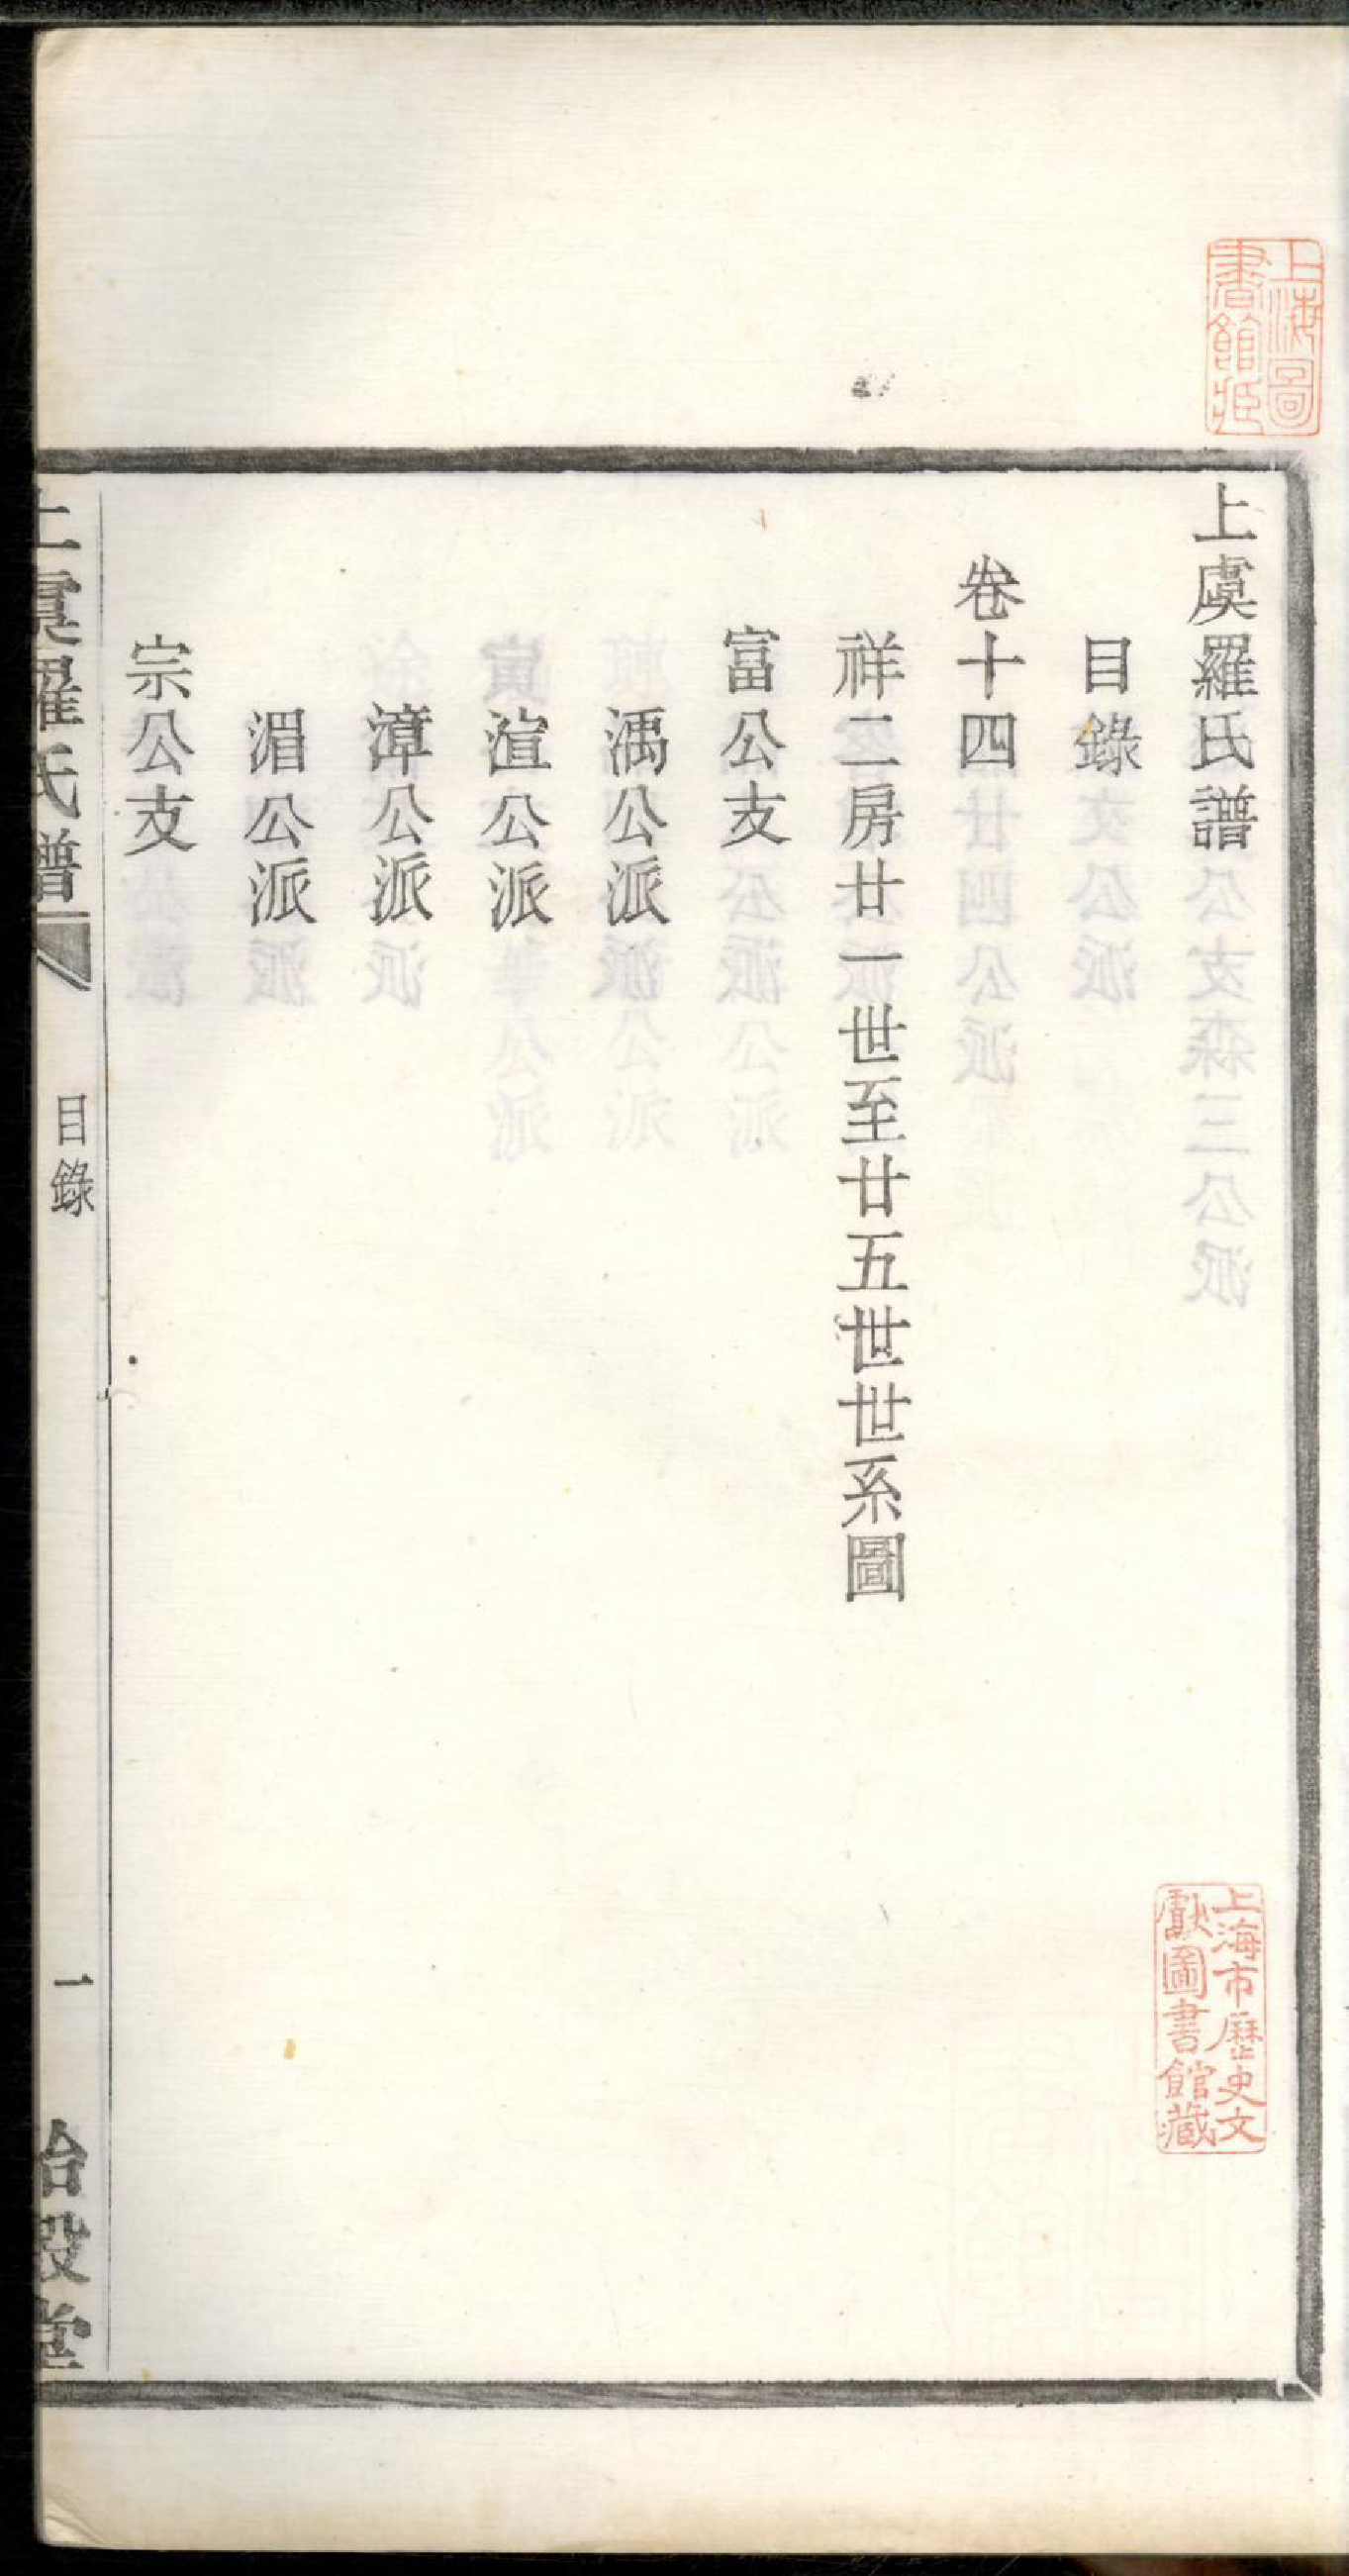 上海圖
書館藏
上虞羅氏譜
目錄
卷十四
祥二房廿一世至廿五世世系圖
富公支
渪公派
渲公派
漳公派
湄公派
宗公支
上虞羅氏譜
目錄
一
詒穀堂
上海市歷史文
獻圖書館藏